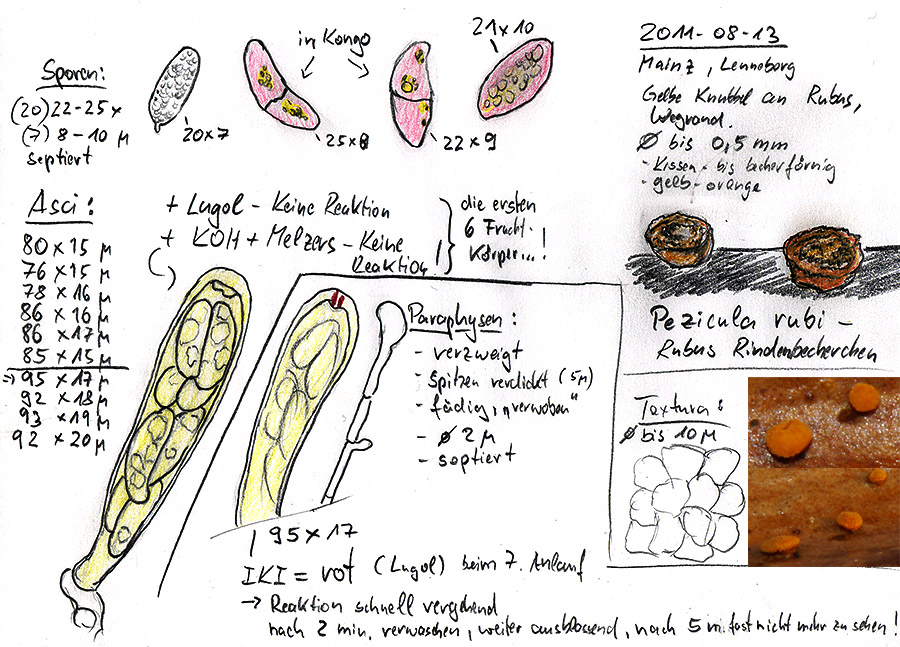 Sporen:
(20) 22-25 x
(7) 8-10 µ
septiert
20x7
in Kongo
25x8
22x9
21x10
2011-08-13
Mainz, Lenneberg
Gelbe Knubbel an Rubus,
Wegrand.
Ø bis 0,5 mm
- Kissen- bis becherförmig
- gelb-orange
Pezicula rubi -
Rubus Rindenbecherchen
Asci:
80 x 15 µ
76 x 15 µ
78 x 16 µ
86 x 16 µ
86 x 17 µ
85 x 15 µ
→ 95 x 17 µ
92 x 18 µ
93 x 19 µ
92 x 20 µ
+ Lugol - Keine Reaktion
+ KOH + Melzers - Keine
Reaktion!
die ersten
6 Frucht-
Körper...!
Paraphysen:
- verzweigt
- Spitzen verdickt (5µ)
- fädig, "verwoben"
- Ø 2 µ
- septiert
Textura:
Ø bis 10 µ
95 x 17
IKI = rot (Lugol) beim 7. Anlauf
→ Reaktion schnell vergehend
nach 2 min. verwaschen, weiter ausblassend, nach 5 m. fast nicht mehr zu sehen!